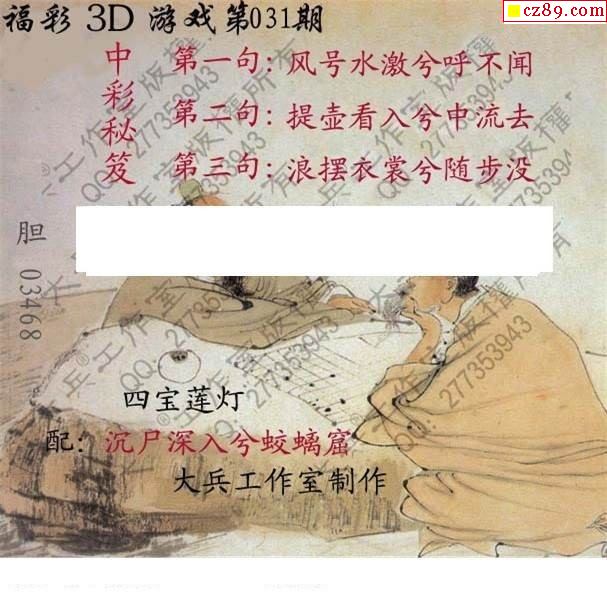 福彩 3D 游戏第031期
cz89.com
中彩秘笈
第一句：风号水激兮呼不闻
第二句：提壶看入兮中流去
第三句：浪摆衣裳兮随步没
胆 03468
四宝莲灯
配：沉尸深入兮蛟螭窟
大兵工作室制作
大兵®工作室版权所有
QQ：277353943